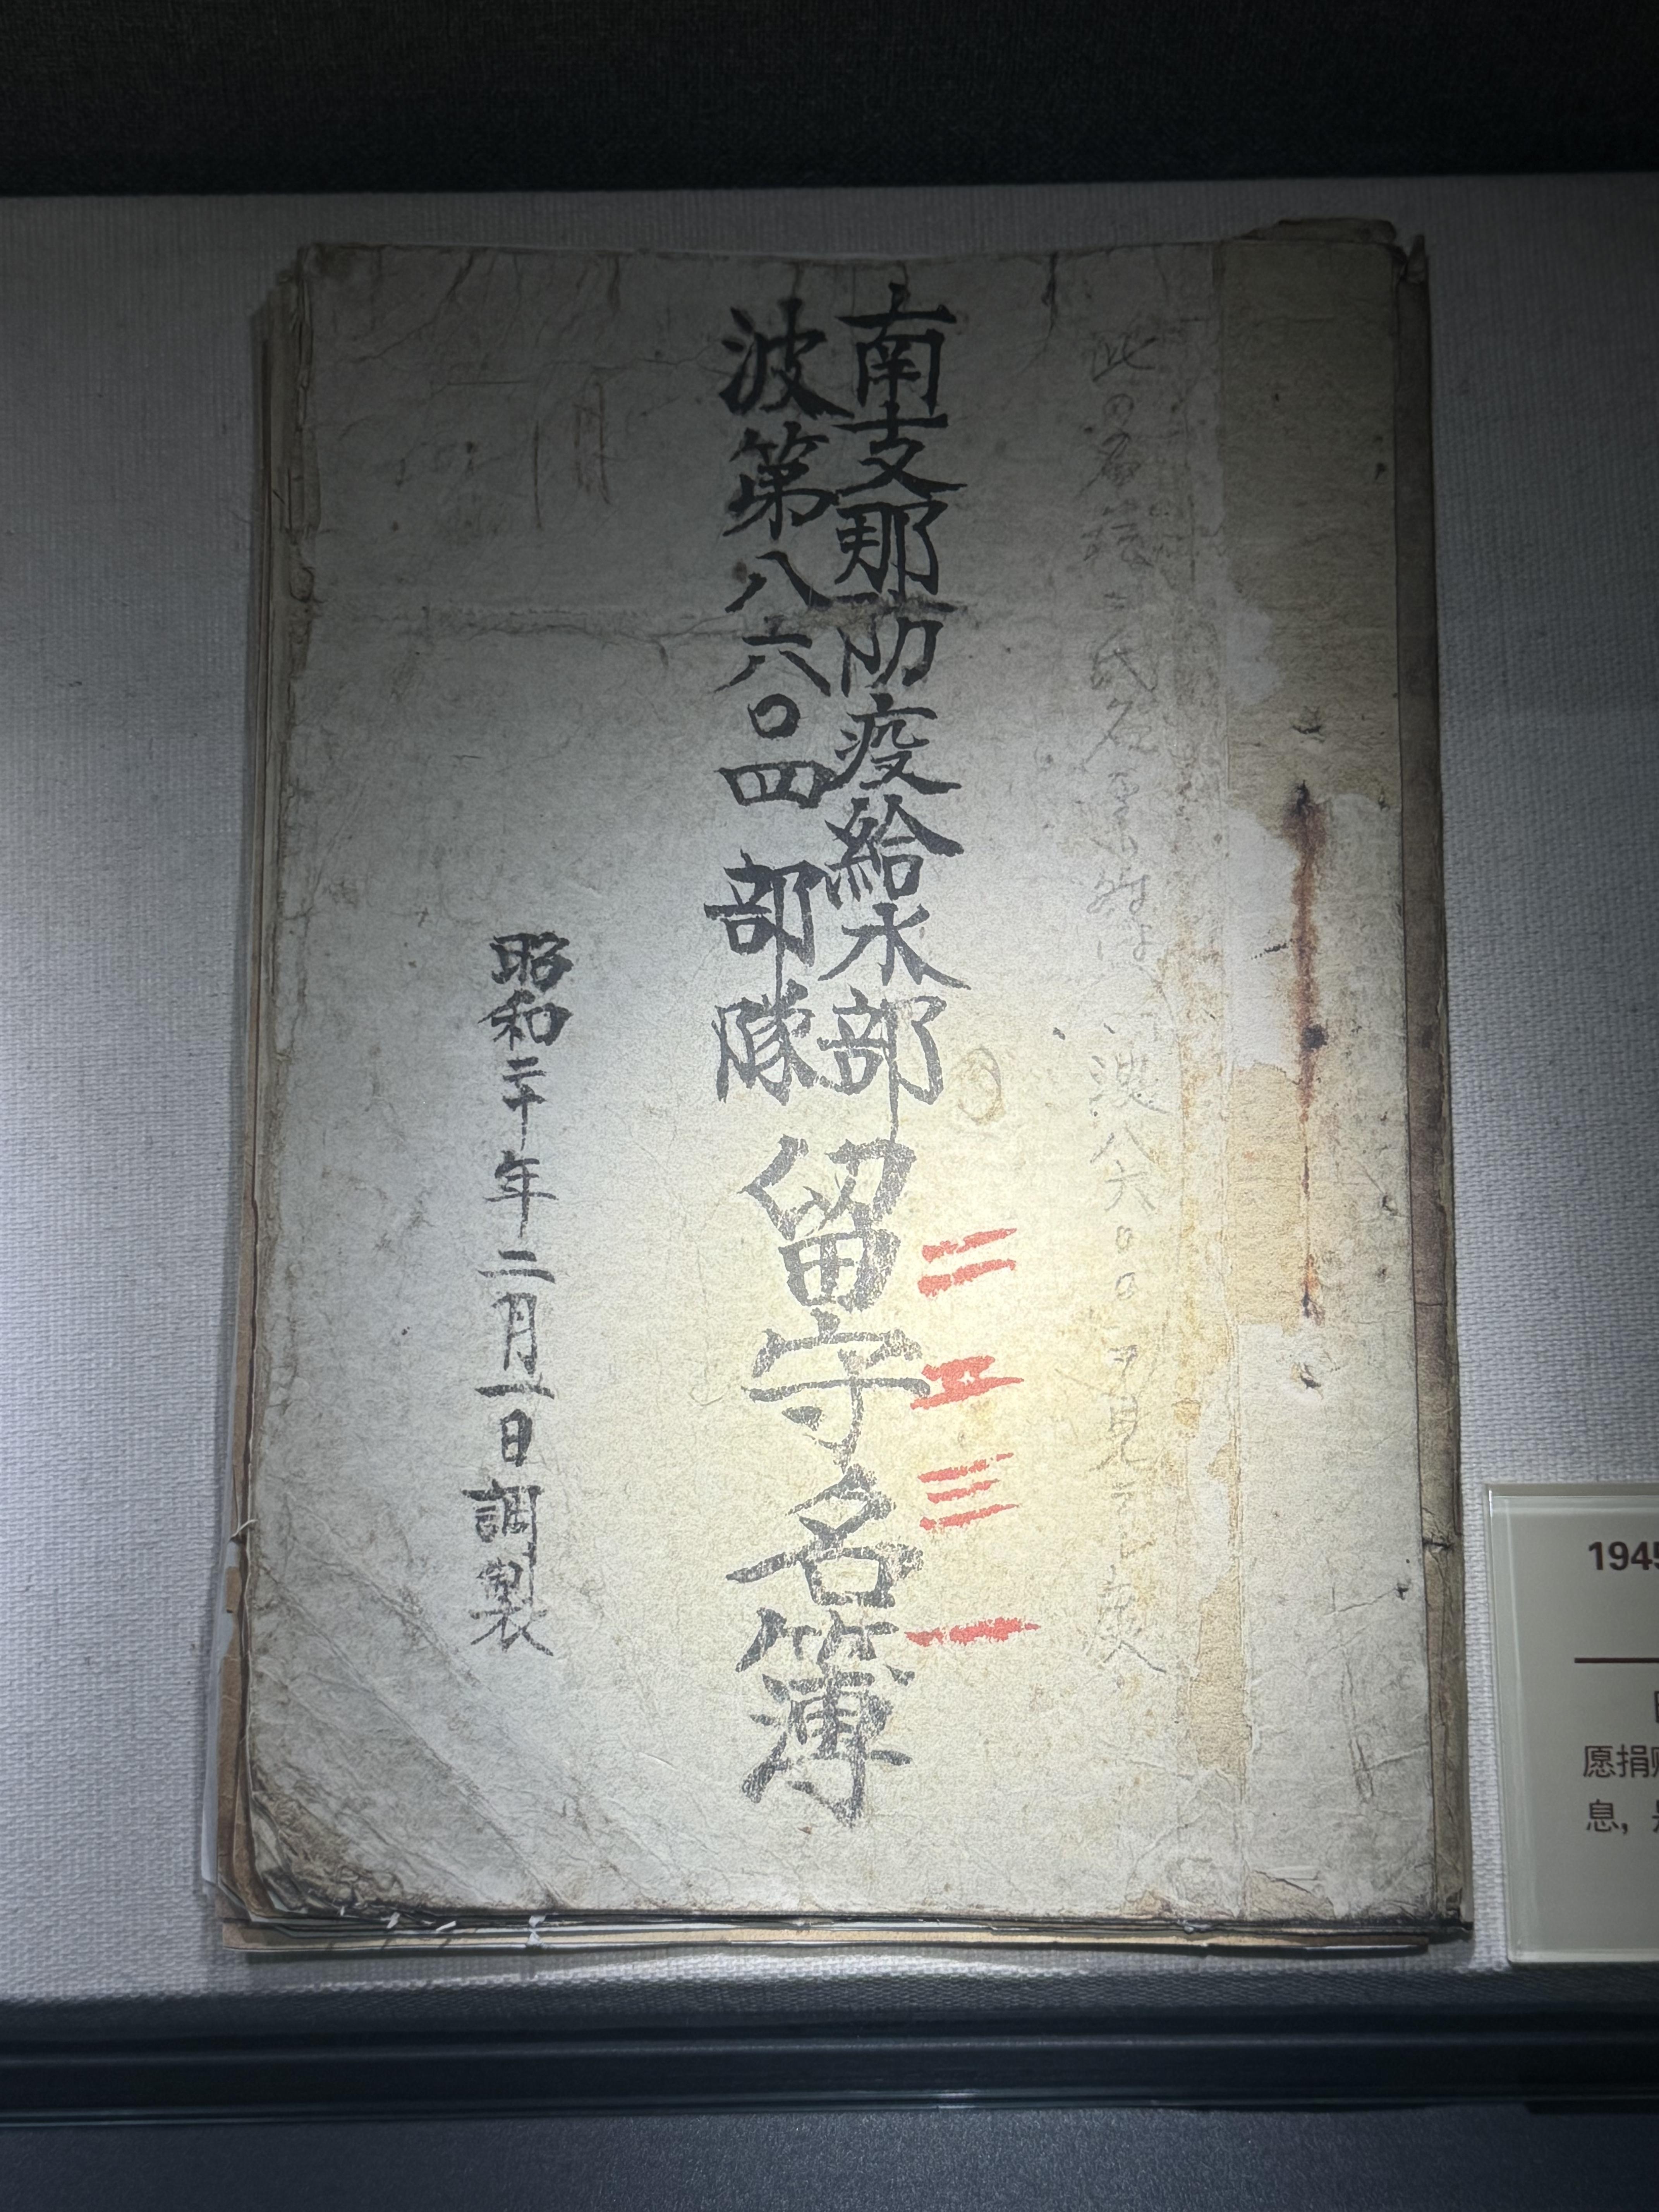 南支那防疫給水部
波第八六〇四部隊
留守名簿
二五三一
昭和二十年二月一日調製
此の名簿
氏名
波八六〇〇ヲ見
194
愿捐
息，